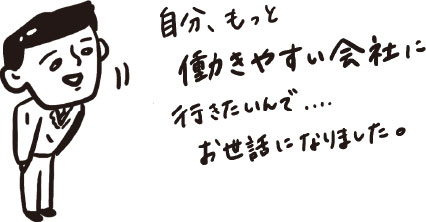 自分、もっと
働きやすい会社に
行きたいんで‥‥
お世話になりました。